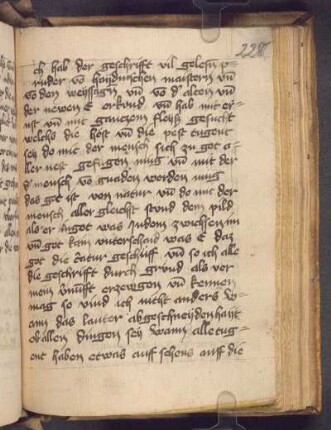 228
ich hab der geschrifft vil gelesen
vō haydnischen maistern vñ
vō den weyssagn vñ vō d' alten vñ
der newen E erkund vñ hab mit er-
nst vñ mit gantzem fleyß gesucht
welchs die höst vñ die pest tugent
sey do mit der mensch sich zu got a-
ller nest gefugen mug vñ mit der
d' mensch vō gnaden werden mug
das got ist von natur vñ do mit der
mensch aller gleichst stund dem pild
als er in got was Indem zwischen im
vñ got kain vnterschaid was E daz
got die creatur geschuff vñ so ich alle
die geschrifft durch grund als ver
mein vnüfft erzewgen vñ kennen
mag so vind ich nicht anders w-
ann das lauter abgeschaydenhait
ob allen dingen sey wann alle tug-
ent haben etwas auff sehens auff die